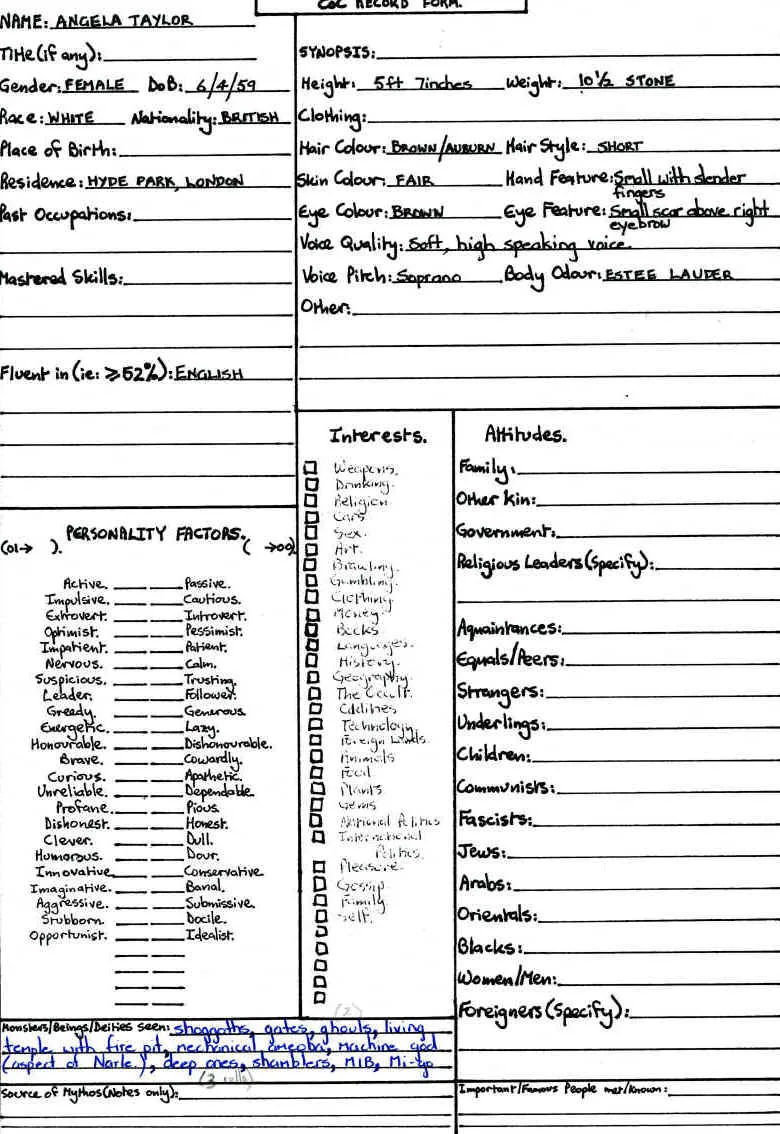 CoC RECORD FORM.
NAME: ANGELA TAYLOR
Title (if any):
Gender: FEMALE DoB: 6/4/59
Race: WHITE Nationality: BRITISH
Place of Birth:
Residence: HYDE PARK, LONDON
Past Occupations:
Mastered Skills:
Fluent in (ie: ≥52%): ENGLISH
SYNOPSIS:
Height: 5ft 7inches Weight: 10½ STONE
Clothing:
Hair Colour: BROWN/AUBURN Hair Style: SHORT
Skin Colour: FAIR Hand Feature: Small with slender
fingers
Eye Colour: BROWN Eye Feature: Small scar above right
eyebrow
Voice Quality: Soft, high speaking voice.
Voice Pitch: Soprano Body Odour: ESTEE LAUDER
Other:
PERSONALITY FACTORS.
(01→ ). ( →00)
Active. Passive.
Impulsive. Cautious.
Extrovert. Introvert.
Optimist. Pessimist.
Impatient. Patient.
Nervous. Calm.
Suspicious. Trusting.
Leader. Follower.
Greedy. Generous.
Energetic. Lazy.
Honourable. Dishonourable.
Brave. Cowardly.
Curious. Apathetic.
Unreliable. Dependable.
Profane. Pious.
Dishonest. Honest.
Clever. Dull.
Humorous. Dour.
Innovative Conservative.
Imaginative. Banal.
Aggressive. Submissive.
Stubborn. Docile.
Opportunist. Idealist.
Interests.
Weapons.
Drinking.
Religion
Cars
Sex.
Art.
Brawling.
Gambling.
Clothing
Money
Books
Languages.
History.
Geography.
The Occult.
Oddities
Technology
Foreign Lands.
Animals
Food
Plants
Gems
National Politics
International
Politics.
Pleasure.
Gossip
Family
Self.
Attitudes.
Family:
Other Kin:
Government:
Religious Leaders (Specify):
Aquaintances:
Equals/Peers:
Strangers:
Underlings:
Children:
Communists:
Fascists:
Jews:
Arabs:
Orientals:
Blacks:
Women/Men:
Foreigners (Specify):
Monsters/Beings/Deities seen: shoggoths, gates, ghouls, living
temple with fire pit, mechanical ameoba, machine god
(aspect of Narle.), deep ones, shamblers, MIB, Mi-go
Source of Mythos (Notes only):
Important/Famous People met/known: